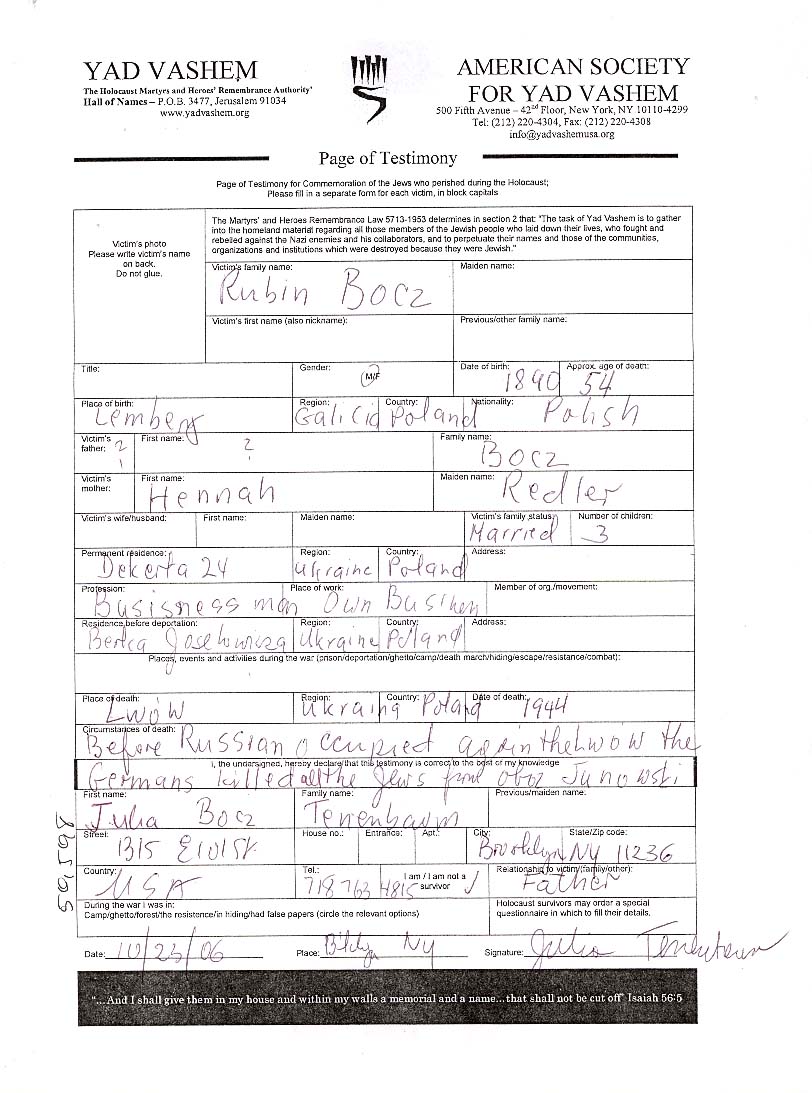 YAD VASHEM
The Holocaust Martyrs and Heroes' Remembrance Authority'
Hall of Names – P.O.B. 3477, Jerusalem 91034
www.yadvashem.org
AMERICAN SOCIETY
FOR YAD VASHEM
500 Fifth Avenue – 42nd Floor, New York, NY 10110-4299
Tel: (212) 220-4304, Fax: (212) 220-4308
info@yadvashemusa.org
Page of Testimony
Page of Testimony for Commemoration of the Jews who perished during the Holocaust;
Please fill in a separate form for each victim, in block capitals
Victim's photo
Please write victim's name
on back.
Do not glue.
The Martyrs' and Heroes Remembrance Law 5713-1953 determines in section 2 that: "The task of Yad Vashem is to gather
into the homeland material regarding all those members of the Jewish people who laid down their lives, who fought and
rebelled against the Nazi enemies and his collaborators, and to perpetuate their names and those of the communities,
organizations and institutions which were destroyed because they were Jewish."
Victim's family name: Maiden name:
Rubin Bocz
Victim's first name (also nickname): Previous/other family name:
Title: Gender: M/F Date of birth: Approx. age of death:
1890 54
Place of birth: Region: Country: Nationality:
Lemberg Galicia Poland Polish
Victim's father: First name: Family name:
? ? Bocz
Victim's mother: First name: Maiden name:
Hennah Redler
Victim's wife/husband: First name: Maiden name: Victim's family status: Number of children:
Married 3
Permanent residence: Region: Country: Address:
Dekerta 24 Ukraine Poland
Profession: Place of work: Member of org./movement:
Busisness man Own Busines
Residence before deportation: Region: Country: Address:
Ukraine Poland
Places, events and activities during the war (prison/deportation/ghetto/camp/death march/hiding/escape/resistance/combat):
Place of death: Region: Country: Date of death:
LWOW Ukraina Poland 1944
Circumstances of death:
Before Russian occupied again the Lwow the
I, the undersigned, hereby declare that this testimony is correct to the best of my knowledge
Germans killed all the Jews from oboz Janowski
First name: Family name: Previous/maiden name:
Julia Bocz Tenenbaum
Street: House no.: Entrance: Apt.: City: State/Zip code:
1315 E 101 St. Brooklyn NY 11236
Country: Tel.: I am / I am not a survivor Relationship to victim(family/other):
USA 718 763 4815 Father
During the war I was in:
Camp/ghetto/forest/the resistence/in hiding/had false papers (circle the relevant options)
Holocaust survivors may order a special
questionnaire in which to fill their details.
Date: 10/23/06 Place: Bklyn NY Signature: Julia Tenenbaum
"...And I shall give them in my house and within my walls a memorial and a name...that shall not be cut off" Isaiah 56:5